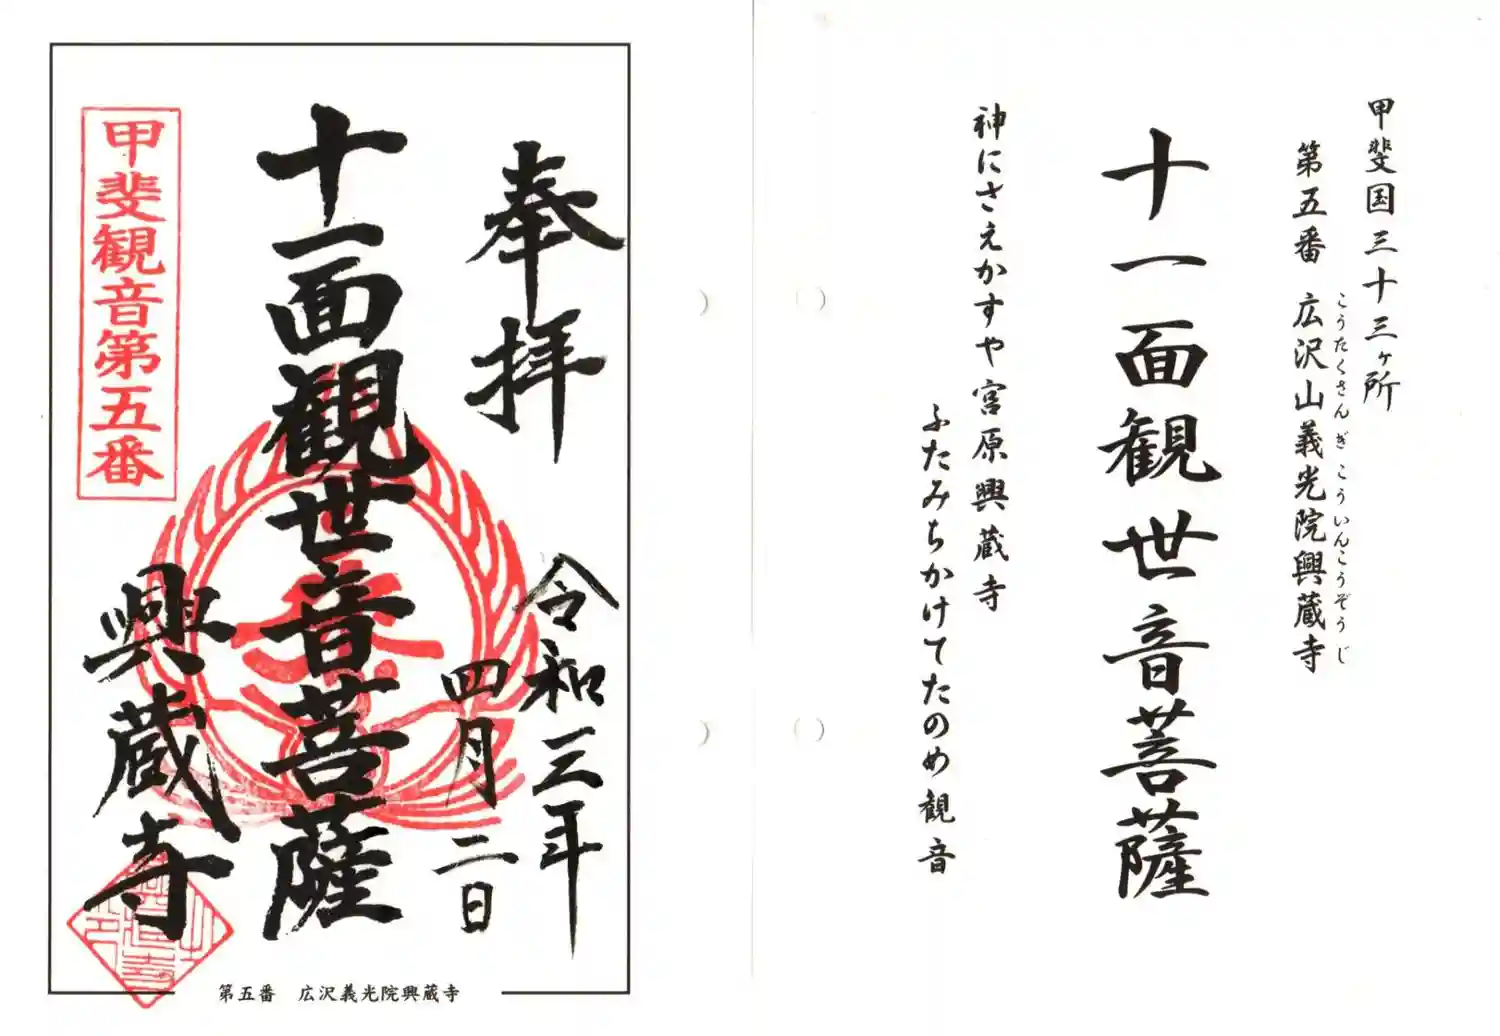 甲斐国三十三ヶ所
第五番 広沢山義光院興蔵寺
こうたくさん ぎこういんこうぞうじ
十一面観世音菩薩
神にさえかすや宮原興蔵寺
ふたみちかけてたのめ観音
奉拝
令和三年
四月二日
十一面観世音菩薩
興蔵寺
甲斐観音第五番
第五番 広沢義光院興蔵寺